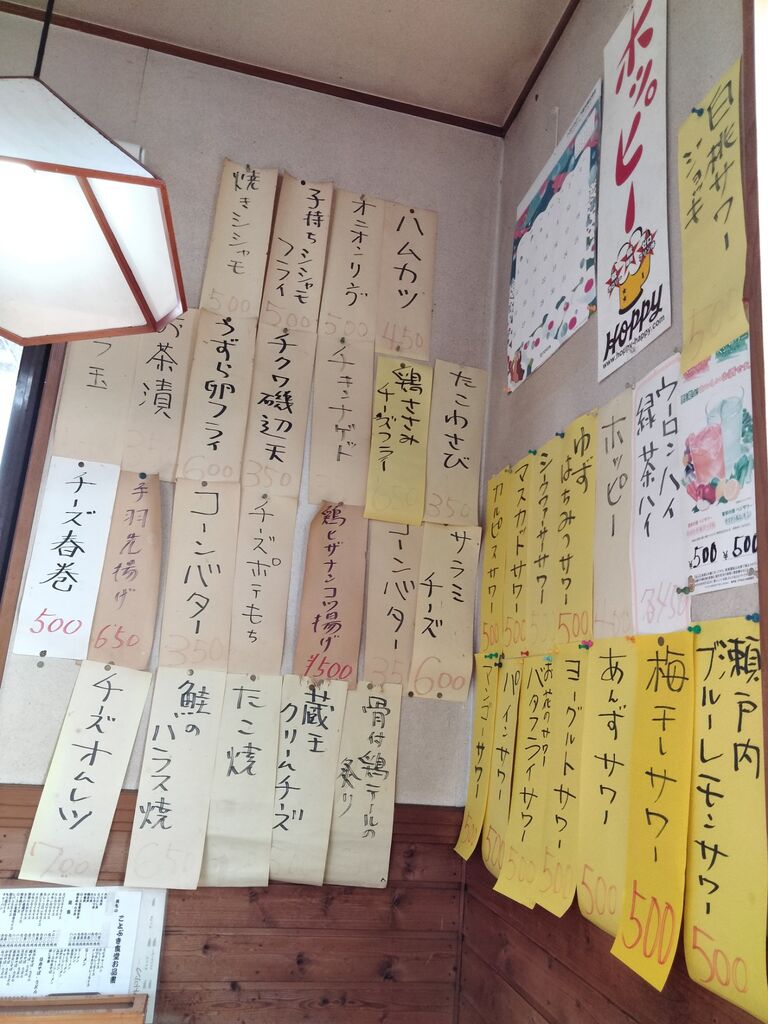 焼きシシャモ
500
子持ちシシャモ
フライ
500
オニオンリング
500
ハムカツ
450
玉
茶漬
うずら卵フライ
600
チクワ磯辺天
350
チキンナゲット
鶏ささみ
チーズフライ
たこわさび
350
チーズ春巻
500
手羽先揚げ
650
コーンバター
350
チーズポテもち
鶏ヒザナンコツ揚げ
¥500
コーンバター
35
サラミ
チーズ
600
チーズオムレツ
700
鮭の
バラス焼
650
たこ焼
蔵王
クリームチーズ
骨付鶏テールの
炙り
ホッピー
HOPPY
www.hoppy-happy.com
白桃サワー
ジョッキ
500
カルピスサワー
500
マスカットサワー
500
シークワーサーサワー
ゆず
はちみつサワー
500
ホッピー
ウーロンハイ
緑茶ハイ
各450
¥500
¥500
マンゴーサワー
500
パインサワー
500
お花のサワー
バタフライサワー
500
ヨーグルトサワー
500
あんずサワー
500
梅干しサワー
500
瀬戸内
ブルーレモンサワー
500
ことぶき食堂お品書